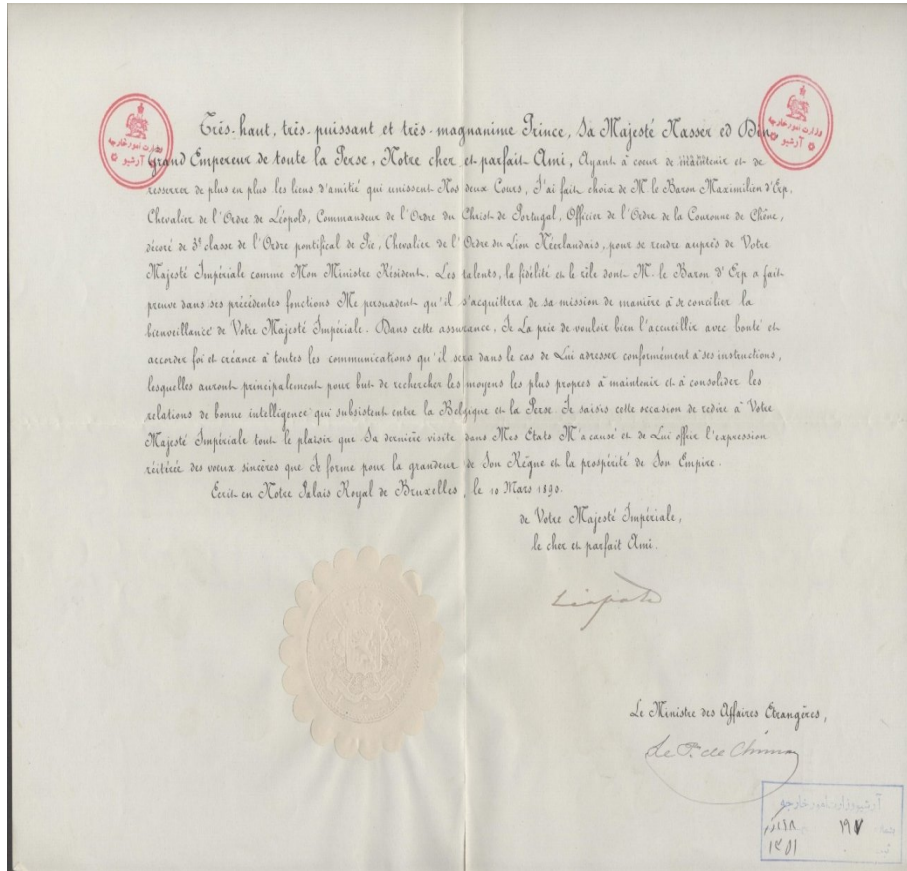 Très-haut, très-puissant et très-magnanime Prince, Sa Majesté Nasser ed Din
Grand Empereur de toute la Perse, Notre cher et parfait Ami, Ayant à coeur de maintenir et de
resserrer de plus en plus les liens d'amitié qui unissent Nos deux Cours, J'ai fait choix de M. le Baron Maximilien d'Erp,
Chevalier de l'Ordre de Léopold, Commandeur de l'Ordre du Christ de Portugal, Officier de l'Ordre de la Couronne de Chêne,
décoré de 3e classe de l'Ordre pontifical de Pie, Chevalier de l'Ordre du Lion Néerlandais, pour se rendre auprès de Votre
Majesté Impériale comme Mon Ministre Résident. Les talents, la fidélité et le zèle dont M. le Baron d'Erp a fait
preuve dans ses précédentes fonctions Me persuadent qu'il s'acquittera de sa mission de manière à se concilier la
bienveillance de Votre Majesté Impériale. Dans cette assurance, Je La prie de vouloir bien l'accueillir avec bonté et
accorder foi et créance à toutes les communications qu'il sera dans le cas de Lui adresser conformément à ses instructions,
lesquelles auront principalement pour but de rechercher les moyens les plus propres à maintenir et à consolider les
relations de bonne intelligence qui subsistent entre la Belgique et la Perse. Je saisis cette occasion de redire à Votre
Majesté Impériale tout le plaisir que Sa dernière visite dans Mes Etats M'a causé et de Lui offrir l'expression
réitérée des voeux sincères que Je forme pour la grandeur de Son Règne et la prospérité de Son Empire.
Ecrit en Notre Palais Royal de Bruxelles, le 10 Mars 1890.
de Votre Majesté Impériale,
le cher et parfait Ami.
Léopold
Le Ministre des Affaires Etrangères,
Le P. de Chimay
وزارت امور خارجه
آرشیو
وزارت امور خارجه
آرشیو